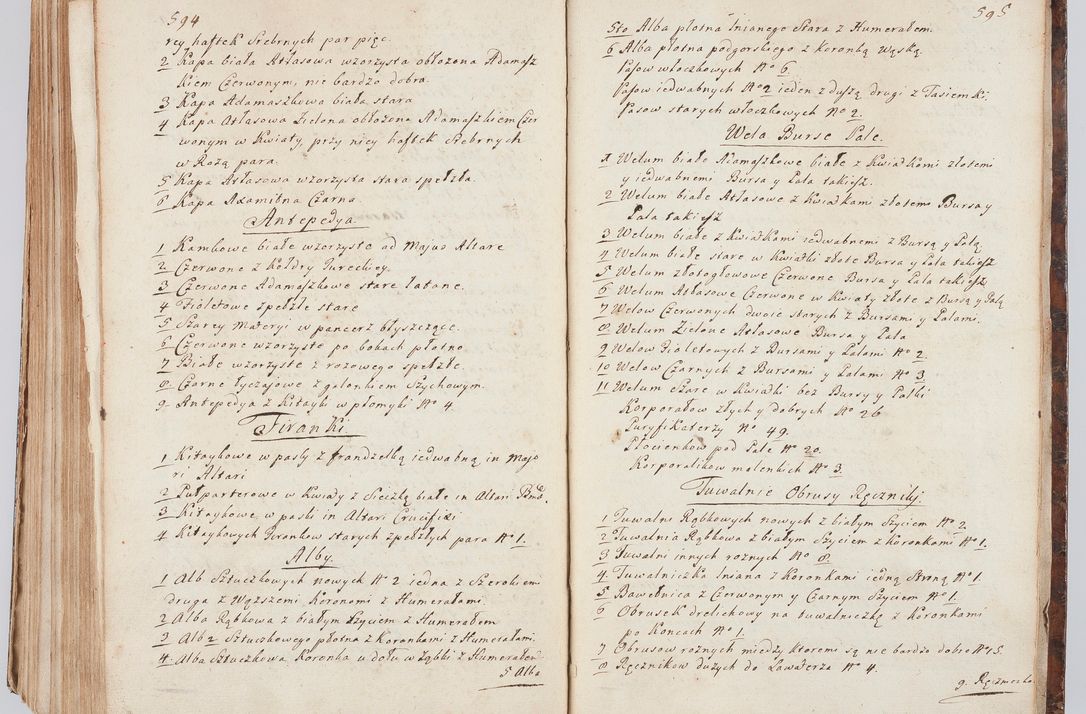 594
rey haftek Srebrnych par pięc.
2 Kapa biała Atłasowa wzorzysta obłożona Adamasz
kiem Czerwonym, nie bardzo dobra.
3 Kapa Adamaszkowa biała stara
4 Kapa Atłasowa Zielona obłożona Adamaszkiem Czer
wonym w Kwiaty, przy niey haftek Srebrnych
w Rozą para.
5 Kapa Atłasowa wzorzysta stara spełzła.
6 Kapa Axamitna Czarna.
Antepedya
1 Kambowe białe wzorzyste ad Majus Altare
2 Czerwone z Kołdry Tureckiey.
3 Czerwone Adamaszkowe stare łatane.
4 Fioletowe spełzłe stare
5 Szarey Materyi w pancerz błyszczące.
6 Czerwone wzorzyste po bokach płotno.
7 Białe wzorzyste z rozowego spełzłe.
8 Czarne tyczajowe z galonkiem Szychowym.
9. Antepedya z Kitayki w płomyki No 4.
Firanki
1 Kitaykowe w pasły z frandzelką iedwabną in Majo
ri Altari
2 Pułparterowe w Kwiaty z Sieczką białe in Altari
3 Kitaykowe w paski in Altari Crucifixi
4 Kitaykowych Firankow starych spełzłych para No 1.
Alby
1 Alb Sztuczkowych nowych No 2 iedna z Szerokiem
druga z Węższemi Koronami z Humerałami
2 Alba Rąbkowa z białym szyciem z Humerałem
3 Alb 2 Sztuczkowego płotna z Koronkami z Humerałami.
4 Alba Sztuczkowa Koronka u dołu w ząbki z Humerałem
5 Alba
595
5to Alba płotna lnianego Stara z Humerałem.
6 Alba płotna podgorskiego z koronką wąską
Pasow włoczkowych No 6.
Pasow iedwabnych No 2 ieden z duszą drugi z Tasiemki.
Pasow starych włoczkowych No 2.
Wela Burse Pale.
1 Welum białe Adamaszkowe białe z Kwiatkami złotemi
y iedwabnemi Bursa y Pala takiesz.
2 Welum białe Atłasowe z Kwiatkami złotemi Bursa y
Pala takiesz
3 Welum białe z Kwiatkami iedwabnemi z Bursą y Palą
4 Welum białe stare w Kwiatki złote Bursa y Pala takiesz
5 Welum złotogłowowe Czerwone Bursa y Pala takiesz
6 Welum Atłasowe Czerwone w Kwiaty złote z Bursą y Palą
7 Welow Czerwonych dwoie starych z Bursami y Palami.
8 Welum Zielone Atłasowe Bursa y Pala
9 Welow Fioletowych z Bursami y Palami No 2.
10 Welow Czarnych z Bursami y Palami No 3
11 Welum Szare w Kwiatki bez Bursy y Palki
Korporałow złych y dobrych No 26
Puryfikaterzy No 49.
Płocienkow pod Pale No 20.
Korporalikow malenkich No 3.
Tuwalnie Obrusy Ręczniki
1 Tuwalni Rąbkowych nowych z białym Szyciem No 2.
2 Tuwalnia Rąbkowa z białym Szyciem z Koronkami No 1.
3 Tuwalni innych rożnych No 8.
4. Tuwalniczka lniana z Koronkami iedną Stroną No 1.
5 Bawełnica z Czerwonym y Czarnym Szyciem No 1.
6 Obrusek drelichowy na tuwalniczkę z Koronkami
po Koncach No 1.
7 Obrusow rożnych miedzy ktoremi są nie bardzo dobre No 15
8 Ręcznikow dużych do Lawaterza No 4.
9. Ręczniczkow